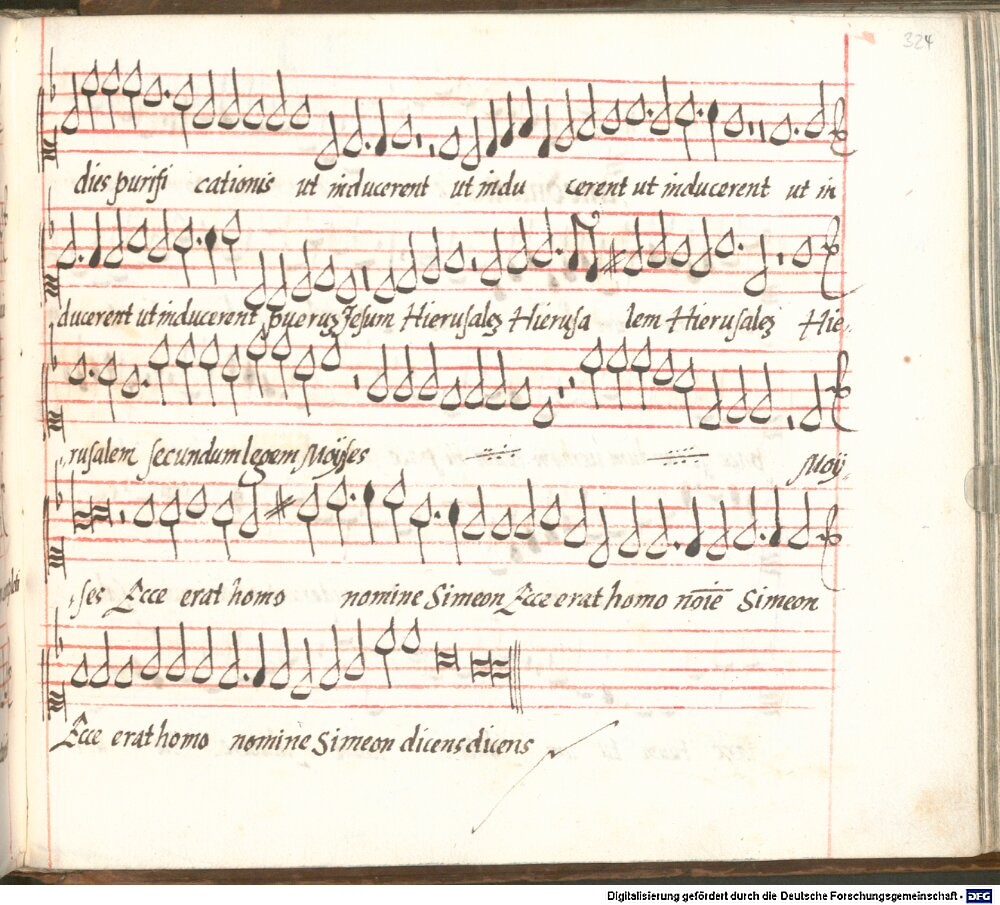 324
dies purifi cationis ut inducerent ut indu cerent ut inducerent ut in
ducerent ut inducerent pueruȝ Jesum Hierusaleȝ Hierusa lem Hierusaleȝ Hie-
rusalem secundum legem Moÿses Moÿ-
ses Ecce erat homo nomine Simeon Ecce erat homo noīe Simeon
Ecce erat homo nomine Simeon dicens dicens
Digitalisierung gefördert durch die Deutsche Forschungsgemeinschaft - DFG